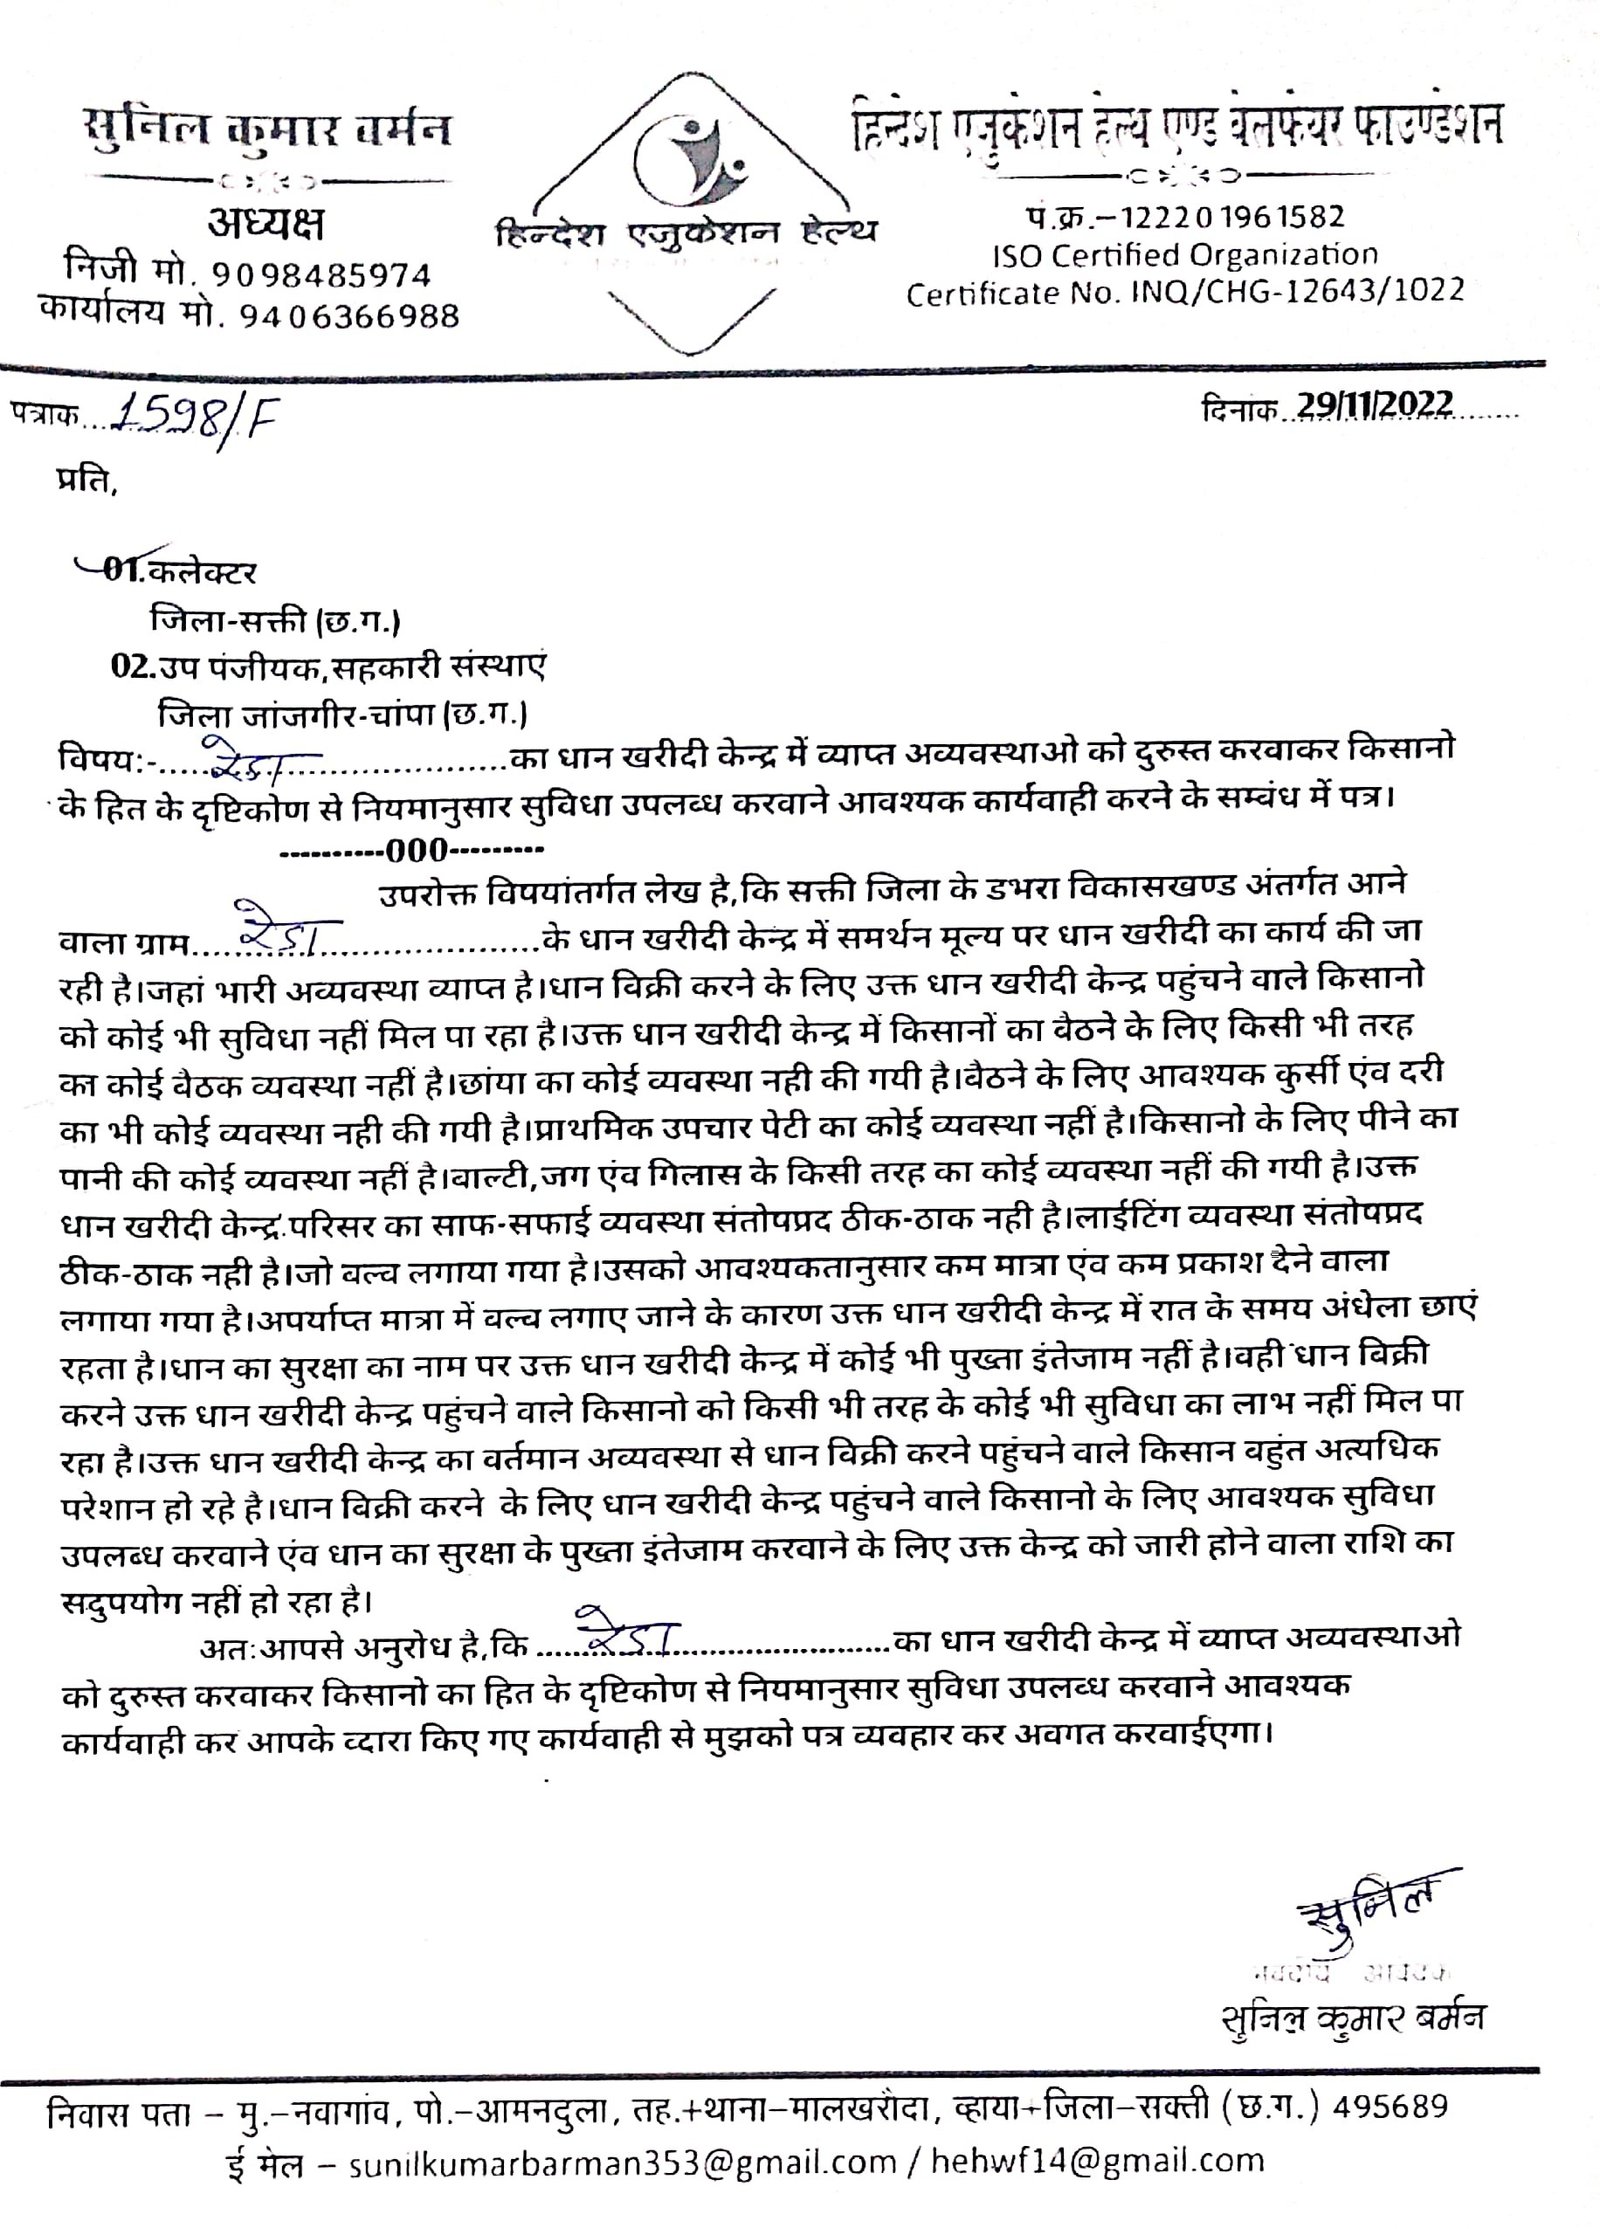 सुनिल कुमार वर्मन
अध्यक्ष
निजी मो. 9098485974
कार्यालय मो. 9406366988
हिन्देश एजुकेशन हेल्थ
हिन्देश एजुकेशन हेल्थ एण्ड वेलफेयर फाउण्डेशन
पं.क्र.–122201961582
ISO Certified Organization
Certificate No. INQ/CHG-12643/1022
पत्राक....1598/F
दिनाक...29/11/2022.........
प्रति,
01.कलेक्टर
जिला-सक्ती (छ.ग.)
02.उप पंजीयक,सहकारी संस्थाएं
जिला जांजगीर-चांपा (छ.ग.)
विषय:-......रेडा.......................का धान खरीदी केन्द्र में व्याप्त अव्यवस्थाओ को दुरुस्त करवाकर किसानो
के हित के दृष्टिकोण से नियमानुसार सुविधा उपलब्ध करवाने आवश्यक कार्यवाही करने के सम्बंध में पत्र।
----------000---------
उपरोक्त विषयांतर्गत लेख है,कि सक्ती जिला के डभरा विकासखण्ड अंतर्गत आने
वाला ग्राम......रेडा.......................के धान खरीदी केन्द्र में समर्थन मूल्य पर धान खरीदी का कार्य की जा
रही है।जहां भारी अव्यवस्था व्याप्त है।धान विक्री करने के लिए उक्त धान खरीदी केन्द्र पहुंचने वाले किसानो
को कोई भी सुविधा नहीं मिल पा रहा है।उक्त धान खरीदी केन्द्र में किसानों का बैठने के लिए किसी भी तरह
का कोई बैठक व्यवस्था नहीं है।छांया का कोई व्यवस्था नही की गयी है।वैठने के लिए आवश्यक कुर्सी एंव दरी
का भी कोई व्यवस्था नही की गयी है।प्राथमिक उपचार पेटी का कोई व्यवस्था नहीं है।किसानो के लिए पीने का
पानी की कोई व्यवस्था नहीं है।वाल्टी,जग एंव गिलास के किसी तरह का कोई व्यवस्था नहीं की गयी है।उक्त
धान खरीदी केन्द्र परिसर का साफ-सफाई व्यवस्था संतोषप्रद ठीक-ठाक नही है।लाईटिंग व्यवस्था संतोषप्रद
ठीक-ठाक नही है।जो वल्व लगाया गया है।उसको आवश्यकतानुसार कम मात्रा एंव कम प्रकाश देने वाला
लगाया गया है।अपर्याप्त मात्रा में वल्व लगाए जाने के कारण उक्त धान खरीदी केन्द्र में रात के समय अंधेला छाएं
रहता है।धान का सुरक्षा का नाम पर उक्त धान खरीदी केन्द्र में कोई भी पुख्ता इंतेजाम नहीं है।वही धान विक्री
करने उक्त धान खरीदी केन्द्र पहुंचने वाले किसानो को किसी भी तरह के कोई भी सुविधा का लाभ नहीं मिल पा
रहा है।उक्त धान खरीदी केन्द्र का वर्तमान अव्यवस्था से धान विक्री करने पहुंचने वाले किसान वहुंत अत्यधिक
परेशान हो रहे है।धान विक्री करने के लिए धान खरीदी केन्द्र पहुंचने वाले किसानो के लिए आवश्यक सुविधा
उपलब्ध करवाने एंव धान का सुरक्षा के पुख्ता इंतेजाम करवाने के लिए उक्त केन्द्र को जारी होने वाला राशि का
सदुपयोग नहीं हो रहा है।
अतःआपसे अनुरोध है,कि ......रेडा.......................का धान खरीदी केन्द्र में व्याप्त अव्यवस्थाओ
को दुरुस्त करवाकर किसानो का हित के दृष्टिकोण से नियमानुसार सुविधा उपलब्ध करवाने आवश्यक
कार्यवाही कर आपके व्दारा किए गए कार्यवाही से मुझको पत्र व्यवहार कर अवगत करवाईएगा।
सुनिल
भवदीय आवेदक
सुनिल कुमार बर्मन
निवास पता – मु.–नवागांव, पो.–आमनदुला, तह.+थाना–मालखरौदा, व्हाया+जिला–सक्ती (छ.ग.) 495689
ई मेल – sunilkumarbarman353@gmail.com / hehwf14@gmail.com